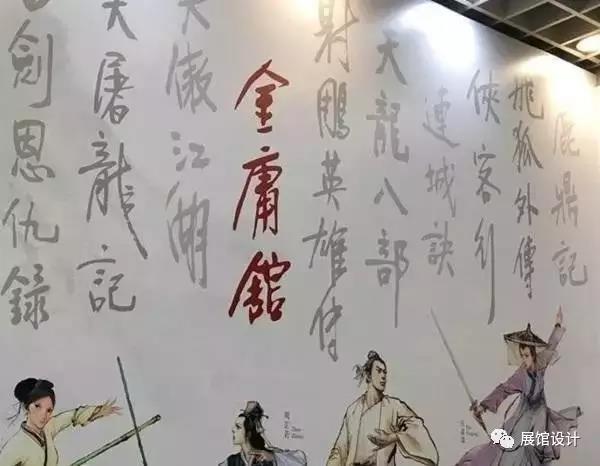 鹿鼎記
飛狐外傳
俠客行
連城訣
天龍八部
射鵰英雄傳
金庸館
笑傲江湖
天屠龍記
劍恩仇錄
展馆设计